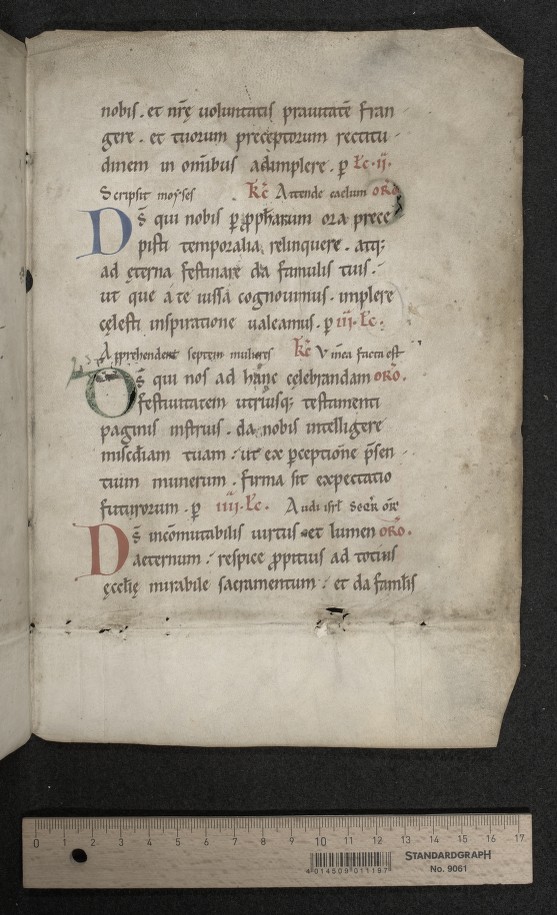 nobis . et nr̄ę uoluntatis prauitatē fran
gere . et tuorum preceptorum rectitu
dinem in om̄ibus adimplere . p̱ Lc̄ . ii .
Scripsit moyses Kc̄ Attende caelum oRo
Ds̄ qui nobis p̱ ꝓph̄arum ora prece
pisti temporalia relinquere . atq;
ad ęterna festinare da famulis tuis .
ut que a te iussa cognouimus . implere
cęlesti inspiratione ualeamus . p̱ iii . Lc̄ .
Apprehendent septem mulieres Kc̄ Vinea facta est
Ds̄ qui nos ad hanc celebrandam oRo .
festiuitatem utriusq; testamenti
paginis instruis . da nobis intelligere
misc̄diam tuam . ut ex p̱ceptiōne p̄sen
tium munerum . firma sit expectatio
futurorum . p̱ iiii . Lc̄ . Audi isrl̄
Ds̄ incōmutabilis uirtus et lumen oRo .
aeternum . respice ꝓpitius ad totius
ęccl̄ię mirabile sacramentum . et da famlīs
0 1 2 3 4 5 6 7 8 9 10 11 12 13 14 15 16 17
4 014509 011187
STANDARDGRAPH
No. 9061